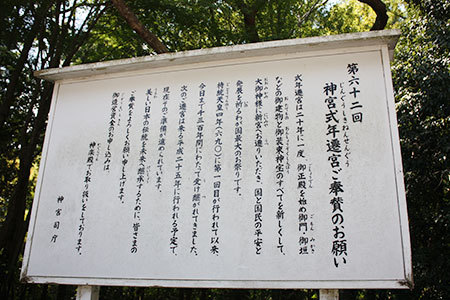 第六十二回
神宮式年遷宮ご奉賛のお願い
式年遷宮は二十年に一度、御正殿を始め御門・御垣
などの御建物と御装束神宝のすべてを新しくして、
大御神様に新宮へお遷りいただき、国と国民の平安と
発展を祈るわが国最大のお祭りです。
持統天皇四年(六九〇)に第一回目が行われて以来
今日まで千三百年間にわたって受け継がれてきました。
次のご遷宮は来る平成二十五年に行われる予定で、
現在そのご準備が進められています。
美しい日本の伝統を未来へ継承するために、皆さまの
ご奉賛をよろしくお願い申し上げます。
御造営資金のお申し込みは、
神楽殿でお取り扱いをしております。
神宮司庁